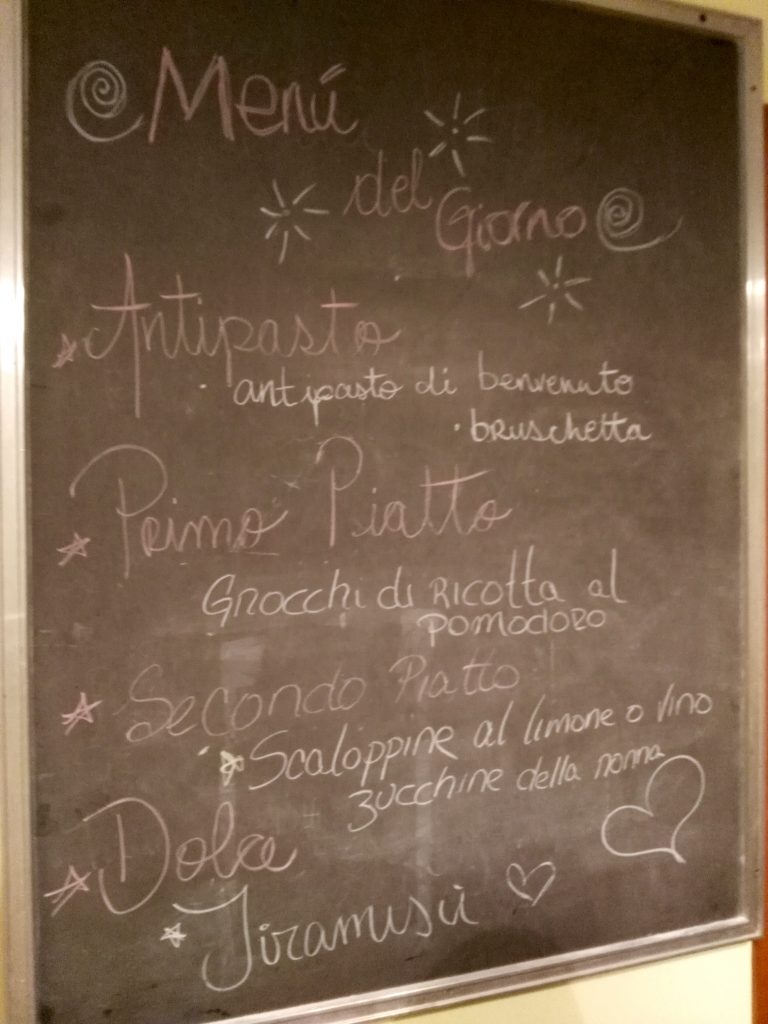 Menú
del Giorno
Antipasto
· antipasto di benvenuto
· bruschetta
Primo Piatto
Gnocchi di Ricotta al
pomodoro
Secondo Piatto
Scaloppine al limone o vino
zucchine della nonna
Dolce
Tiramisù